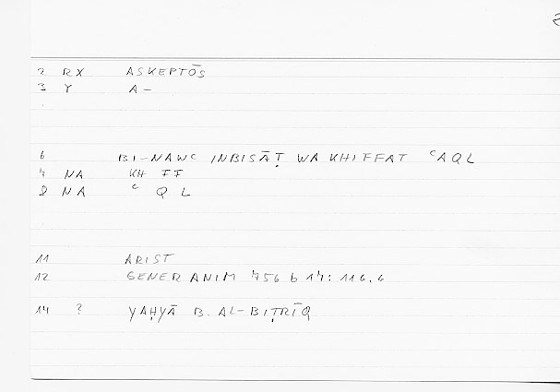 2 RX ASKEPTŌS
3 Y A–
6 BI-NAWᶜ INBISĀṬ WA KHIFFAT ᶜAQL
7 NA KH FF
8 NA ᶜ Q L
11 ARIST
12 GENER ANIM 756 b 17: 116.6
14 ? YAḤYĀ B. AL-BIṬRĪQ